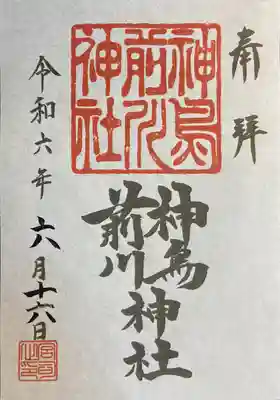 奉拝
神鳥
前川
神社
神鳥
前川神社
令和六年
六月十六日